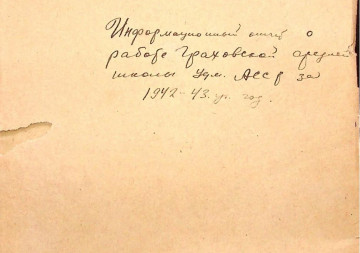 Информационный отчёт о
работе Граховской средней
школы Удм. АССР за
1942-43 уч. год.